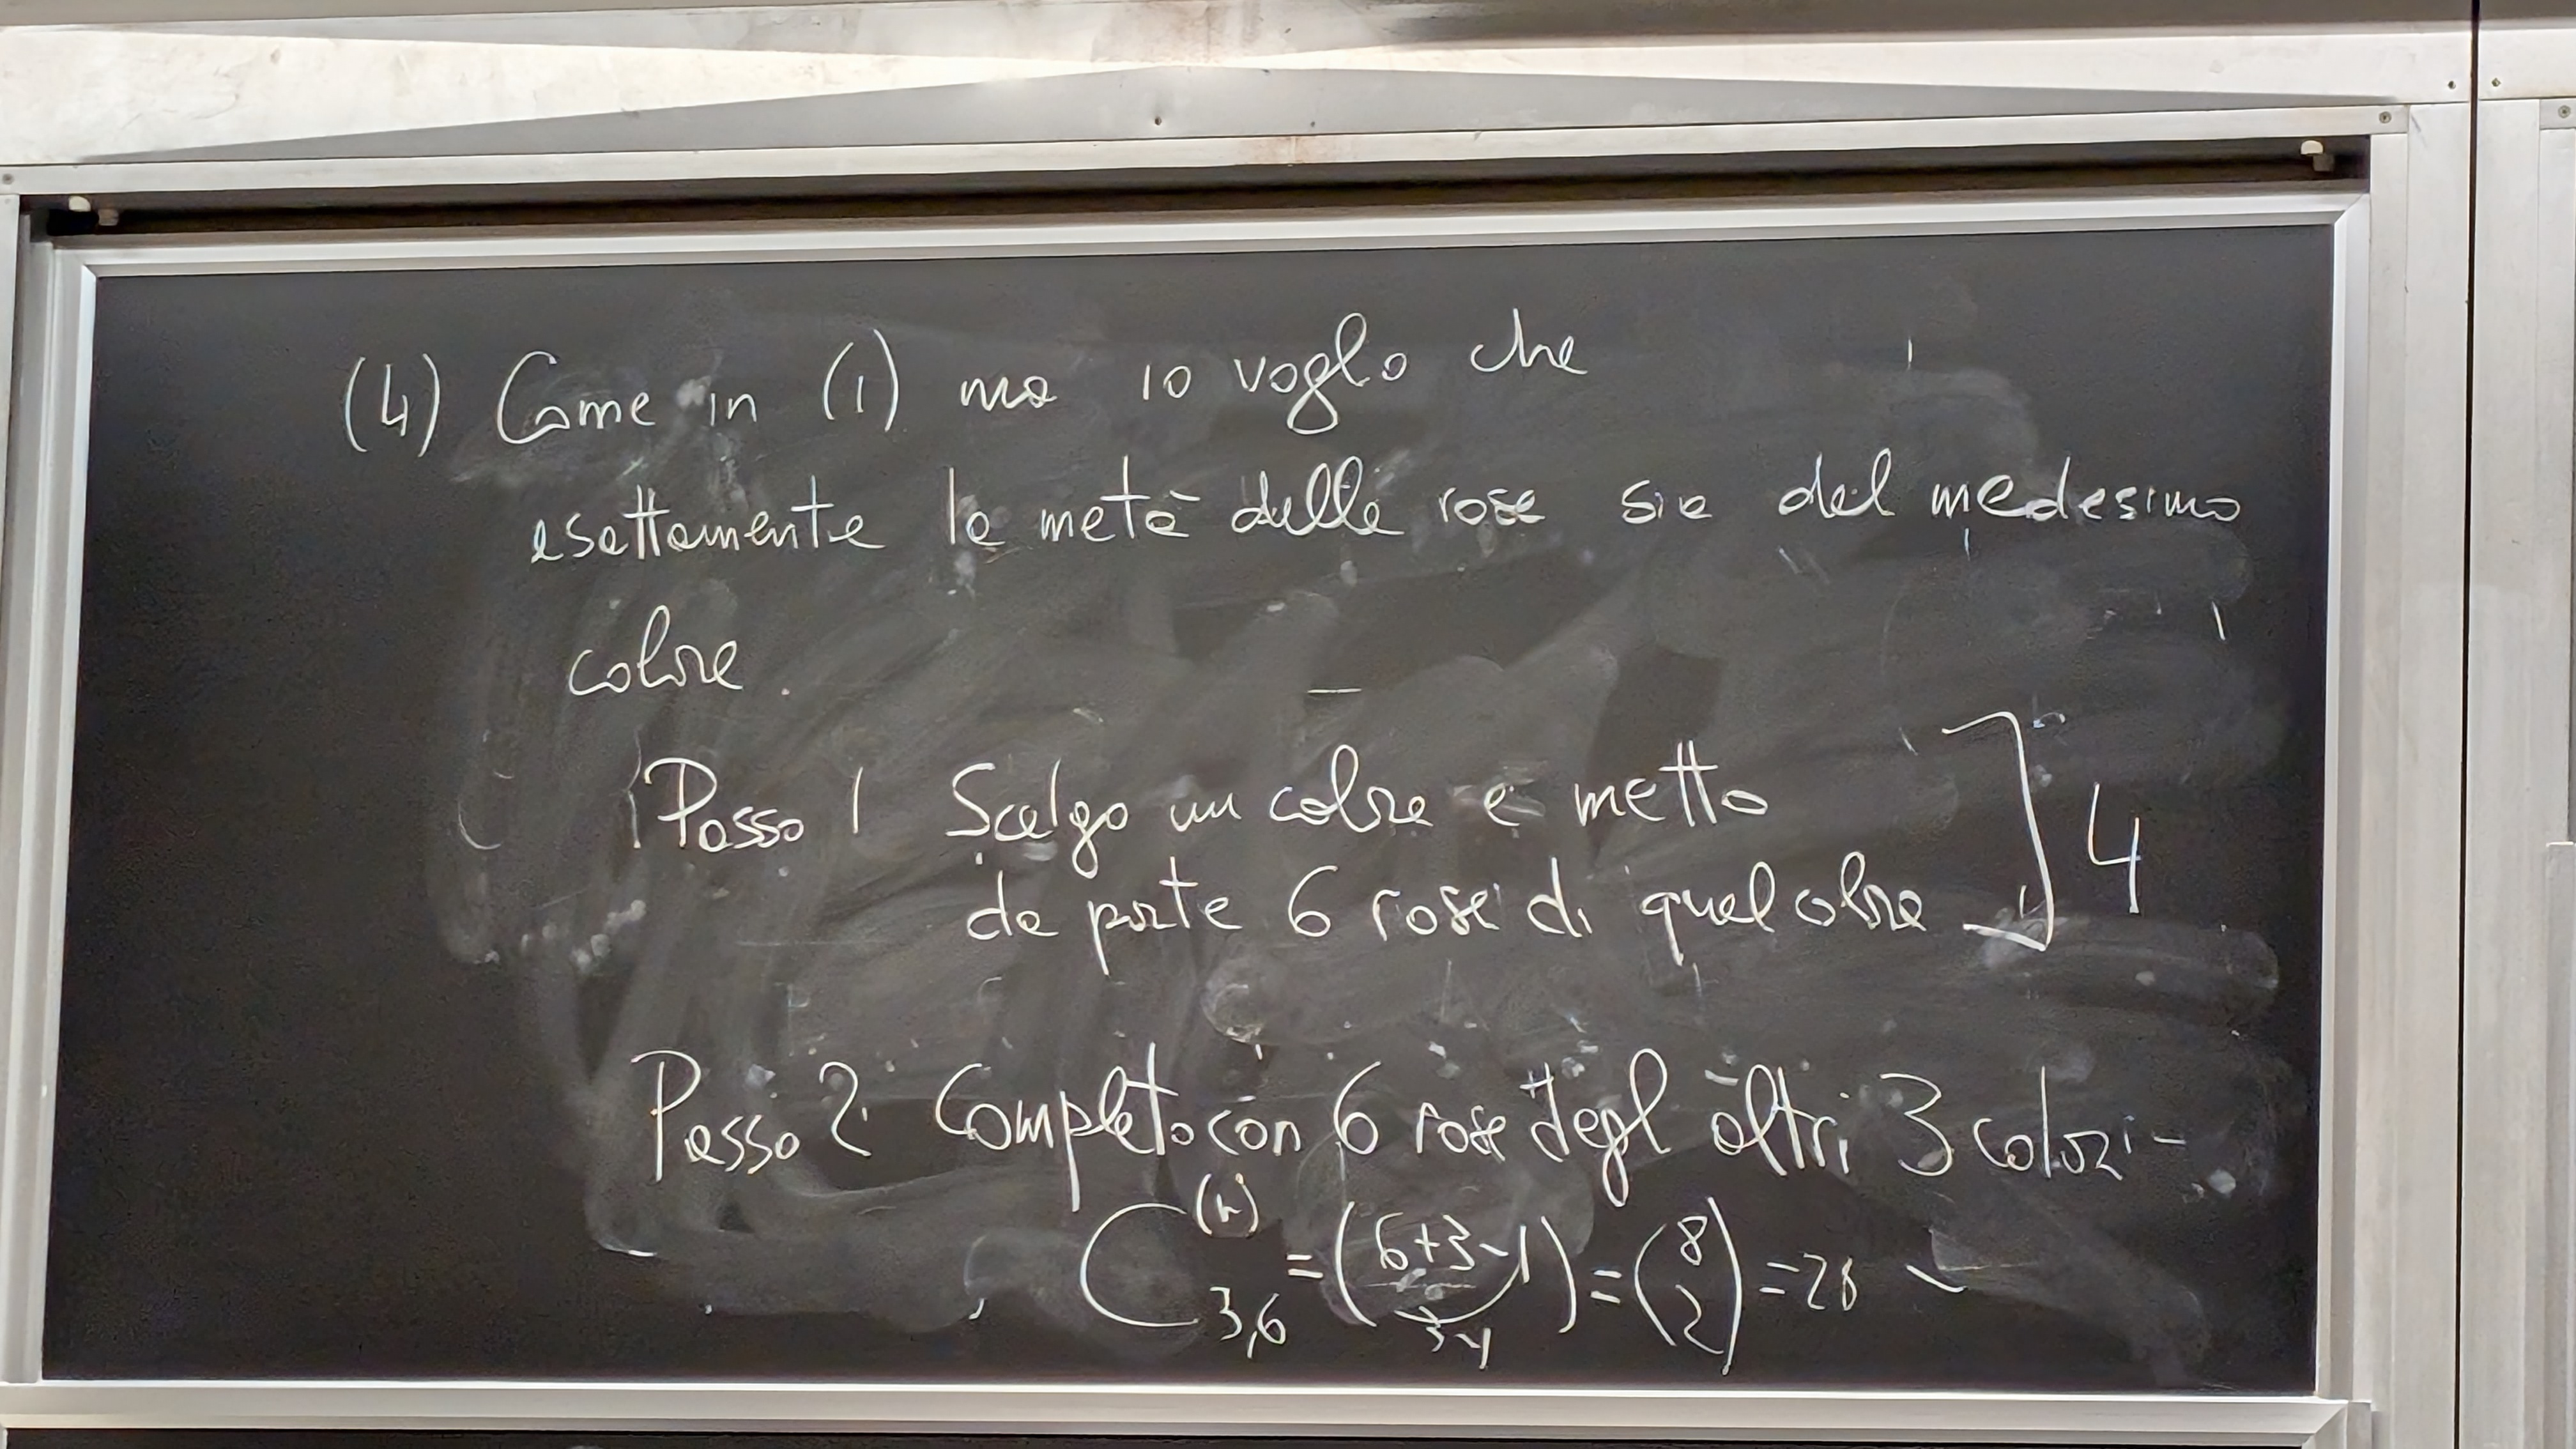 (4) Come in (1) ma io voglio che
esattamente la metà delle rose sia del medesimo
colore.
Passo 1 Scelgo un colore e metto
da parte 6 rose di quel colore ] 4
Passo 2 Completo con 6 rose degl altri 3 colori -
C^{(r)}_{3,6} = \binom{6+3-1}{3-1} = \binom{8}{2} = 28